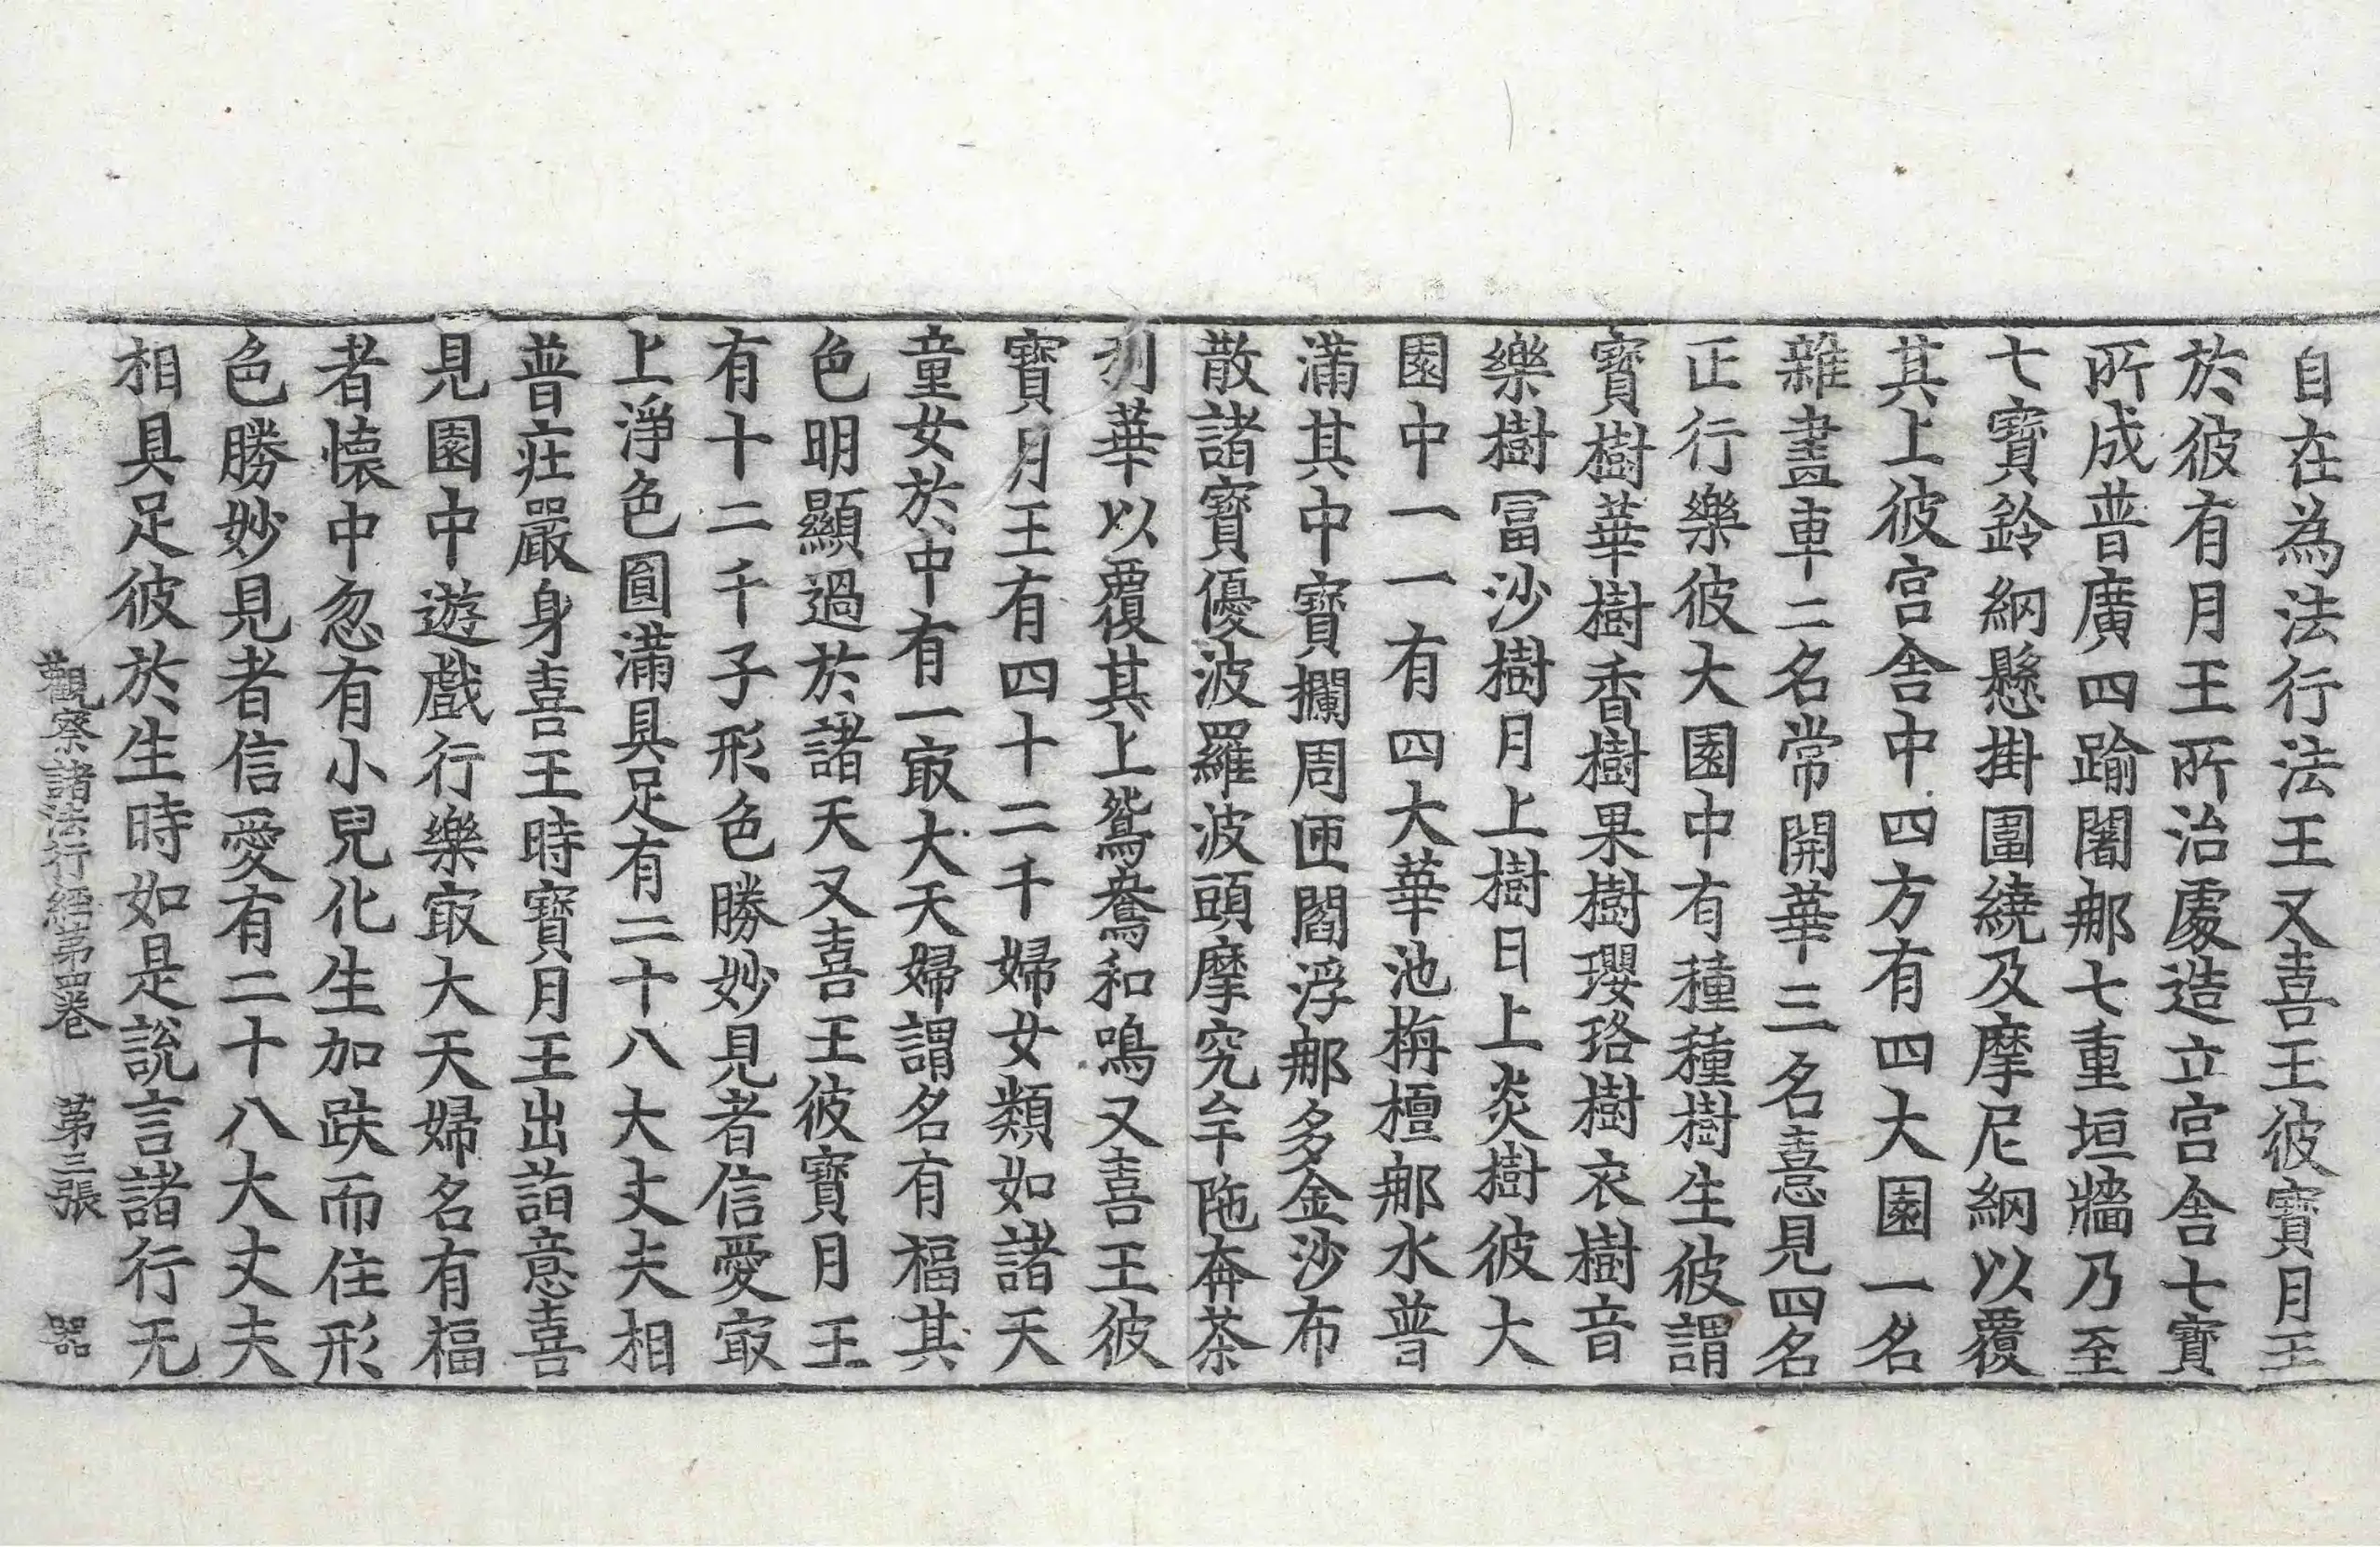 自在為法行法王又喜王彼寶月王
於彼有月王所治處造立宮舍七寶
所成普廣四踰闍那七重垣牆乃至
七寶鈴網懸掛圍繞及摩尼網以覆
其上彼宮舍中四方有四大園一名
雜畫車二名常開華三名憙見四名
正行樂彼大園中有種種樹生彼謂
寶樹華樹香樹果樹瓔珞樹衣樹音
樂樹冨沙樹月上樹日上炎樹彼大
園中一一有四大華池栴檀那水普
滿其中寶欄周匝閻浮那多金沙布
散諸寶優波羅波頭摩究牟陁奔茶
利華以覆其上鴛鴦和鳴又喜王彼
寶月王有四十二千婦女類如諸天
童女於中有一㝡大天婦謂名有福其
色明顯過於諸天又喜王彼寶月王
有十二千子形色勝妙見者信愛㝡
上淨色圓滿具足有二十八大丈夫相
普莊嚴身喜王時寶月王出詣意喜
見園中遊戲行樂㝡大天婦名有福
者懷中忽有小兒化生加趺而住形
色勝妙見者信愛有二十八大丈夫
相具足彼於生時如是說言諸行无
觀察諸法行經第四卷 第三張 器